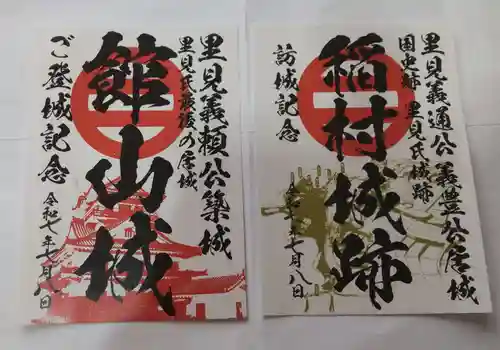 里見義頼公築城
里見氏最後の居城
館山城
ご登城記念
令和七年七月八日
里見義通公 義豊公居城
国史跡 里見氏城跡
稲村城跡
訪城記念
令和七年七月八日